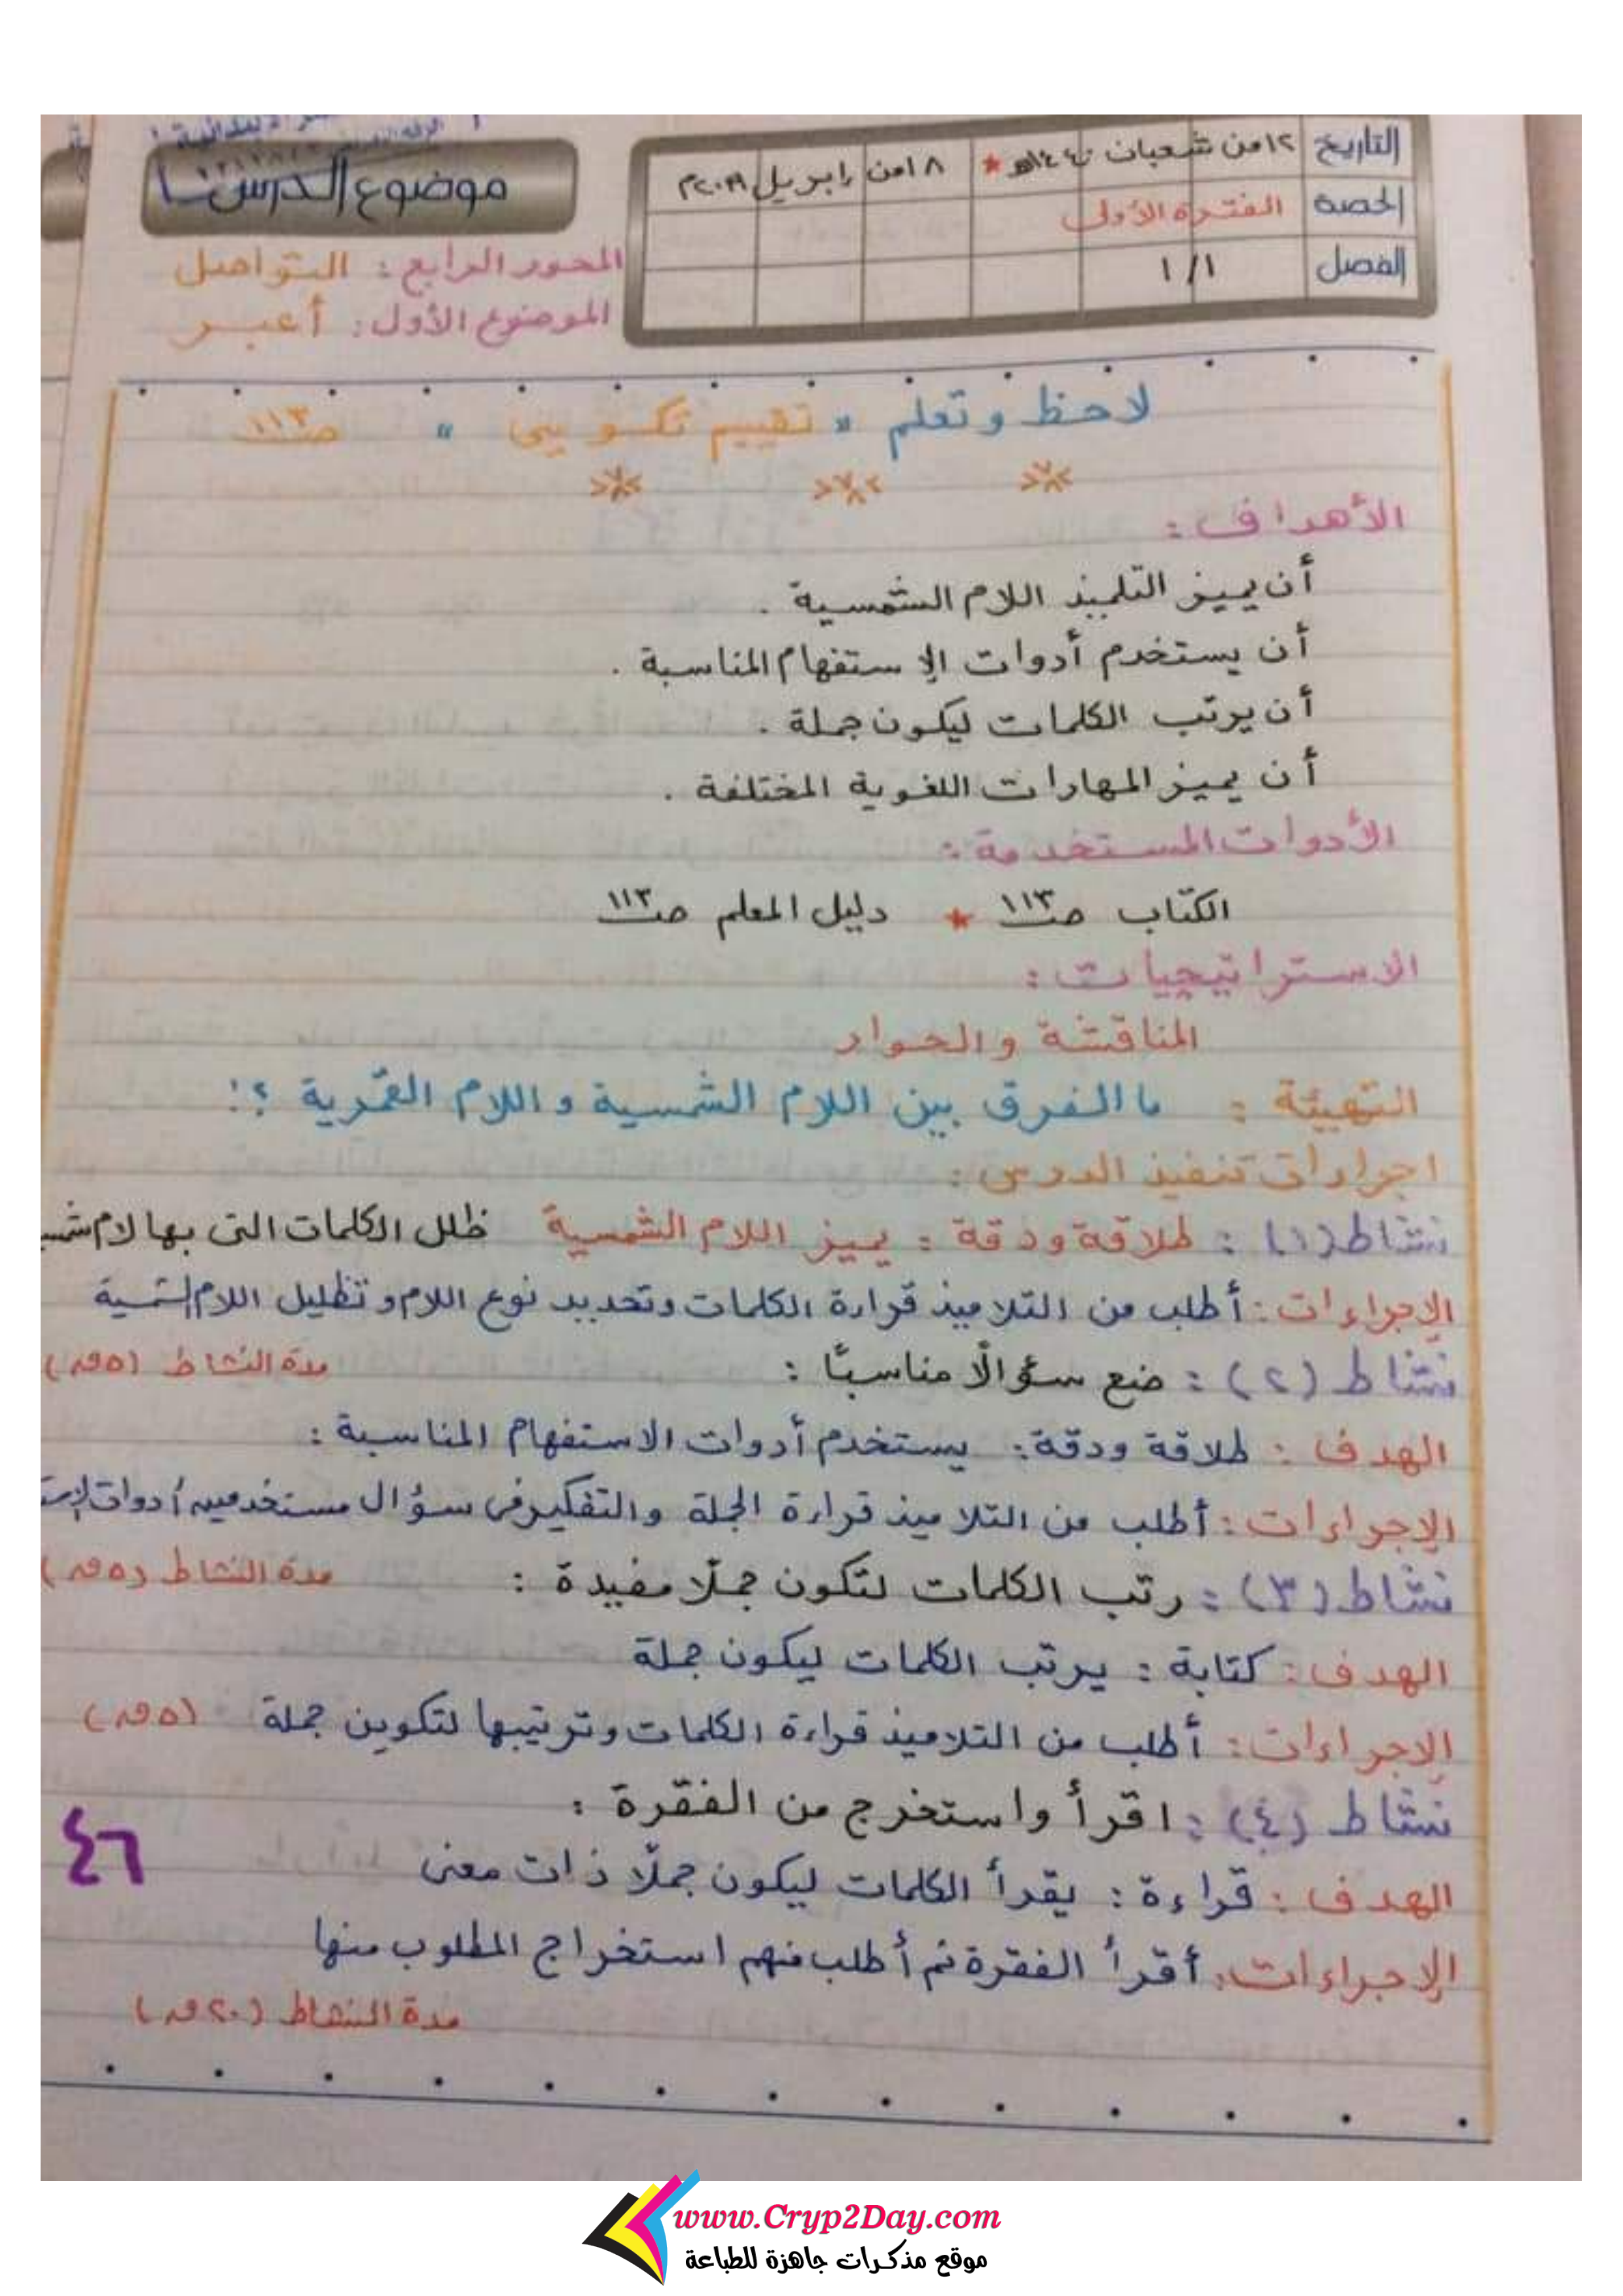 التاريخ ١٢ من شعبان ١٤٤٠هـ * ١٨ من إبريل ٢٠١٩م
الحصة الفترة الأولى
الفصل ١/١
موضوع الدرس
المحور الرابع : التواصل
الموضوع الأول : أعبر
لاحظ وتعلم " تقييم تكويني " صـ ١١٣
الأهداف :
أن يميز التلميذ اللام الشمسية .
أن يستخدم أدوات الإستفهام المناسبة .
أن يرتب الكلمات ليكون جملة .
أن يميز المهارات اللغوية المختلفة .
الأدوات المستخدمة :
الكتاب صـ ١١٣ * دليل المعلم صـ ١١٣
الاستراتيجيات :
المناقشة والحوار
التهيئة : ما الفرق بين اللام الشمسية واللام القمرية ؟!
اجراءات تنفيذ الدرس :
نشاط (١) : طلاقة ودقة : يميز اللام الشمسية ظلل الكلمات التى بها لام
الإجراءات : أطلب من التلاميذ قراءة الكلمات وتحديد نوع اللام وتظليل اللام الشمسية
نشاط (٢) : ضع سؤالًا مناسبًا : مدة النشاط (٥ق)
الهدف : طلاقة ودقة : يستخدم أدوات الاستفهام المناسبة :
الإجراءات : أطلب من التلاميذ قراءة الجملة والتفكير فى سؤال مستخدمين أدوات
نشاط (٣) : رتب الكلمات لتكون جملًا مفيدة : مدة النشاط (٥ق)
الهدف : كتابة : يرتب الكلمات ليكون جملة
الإجراءات : أطلب من التلاميذ قراءة الكلمات وترتيبها لتكوين جملة (٥ق)
نشاط (٤) : اقرأ واستخرج من الفقرة :
الهدف : قراءة : يقرأ الكلمات ليكون جملًا ذات معنى
الإجراءات : أقرأ الفقرة ثم أطلب منهم استخراج المطلوب منها
مدة النشاط (٢٠ق)
٤٦
www.Cryp2Day.com
موقع مذكرات جاهزة للطباعة